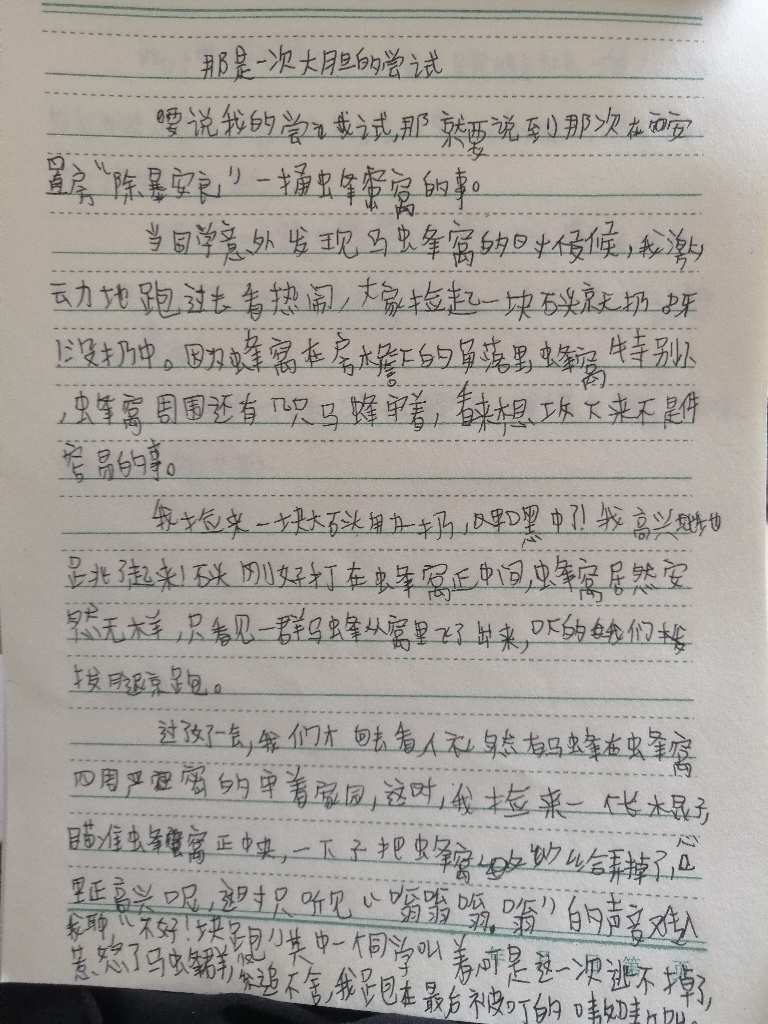 那是一次大胆的尝试
要说我的尝试,那就要说到那次在西安
置房“除暴安良”一捅虫蜂窝的事。
当同学意外发现马虫蜂窝的时候,我激
动地跑过去看热闹,大家捡起一块石头就扔
没扔中。因为虫蜂窝在房檐下的角落里虫蜂窝特别小
,虫蜂窝周围还有几只马蜂守着,看来想攻下来不是件
容易的事。
我捡来一块大石头用力扔,嘿嘿中了!我高兴地
跳了起来!石头刚好打在虫蜂窝正中间,虫蜂窝居然安
然无样,只看见一群马蜂从窝里飞了出来,吓的我们
拔腿就跑。
过了一会,我们才回去看 有马虫蜂在虫蜂窝
四周严密的守着家园,这时,我捡来一个长木棍子,
瞄准虫蜂窝正中央,一下子把虫蜂窝给弄掉了,心
里正高兴呢,这时只听见“嗡嗡嗡嗡”的声音
“不好!快跑”其中一个同学叫着,可是这一次逃不掉了,
惹怒了马虫蜂群,紧追不舍,我跑在最后被叮的嗷嗷